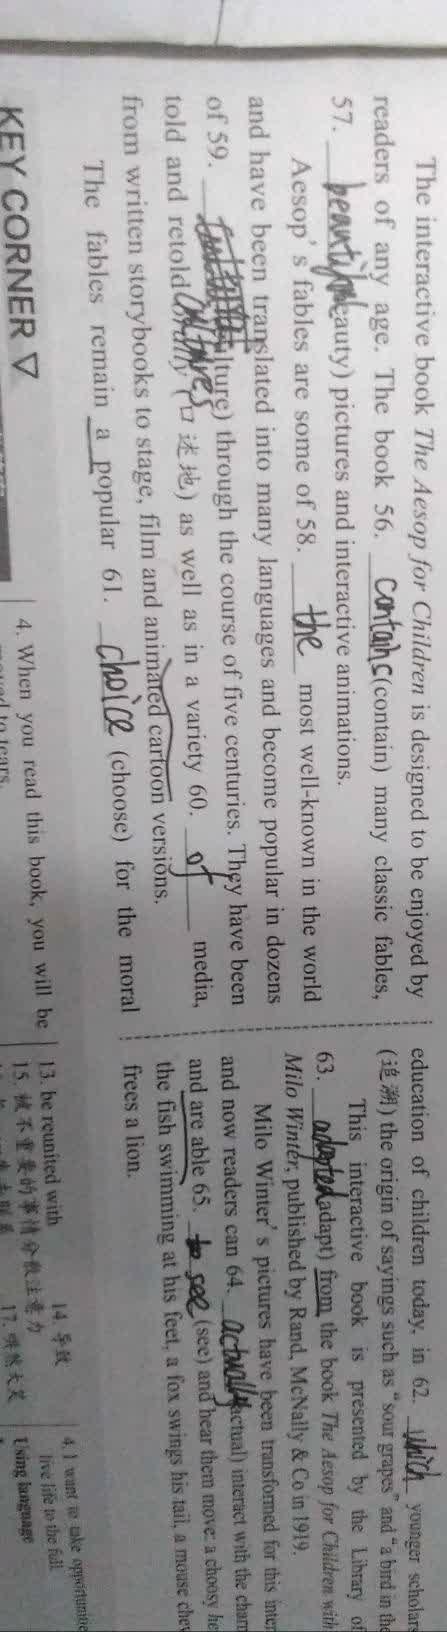 The interactive book The Aesop for Children is designed to be enjoyed by
readers of any age. The book 56. contains (contain) many classic fables,
57. beautiful (beauty) pictures and interactive animations.
Aesop's fables are some of 58. the most well-known in the world
and have been translated into many languages and become popular in dozens
of 59. cultures (culture) through the course of five centuries. They have been
told and retold orally (口述地) as well as in a variety 60. of media,
from written storybooks to stage, film and animated cartoon versions.
The fables remain a popular 61. choice (choose) for the moral
education of children today, in 62. which younger scholars
(追溯) the origin of sayings such as "sour grapes" and "a bird in the
This interactive book is presented by the Library of
63. adapted (adapt) from the book The Aesop for Children with
Milo Winter, published by Rand, McNally & Co in 1919.
Milo Winter's pictures have been transformed for this inter
and now readers can 64. actually (actual) interact with the char
and are able 65. to see (see) and hear them move: a choosy he
the fish swimming at his feet, a fox swings his tail, a mouse chew
frees a lion.
KEY CORNER
4. When you read this book, you will be
moved to tears.
13. be reunited with
14. 导致
15. 被不重要的事情分散注意力
17. 哄然大笑
4. I want to take opportunitie
live life to the full.
Using language